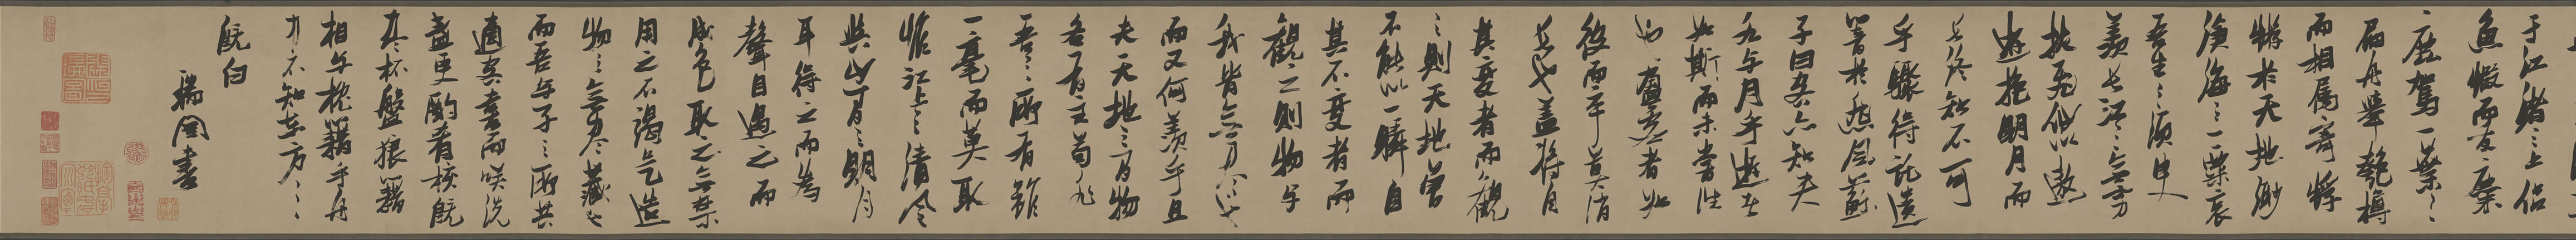 于江渚之上侶
魚蝦而友麋
鹿駕一葉之
扁舟舉匏樽
而相屬寄蜉
蝣於天地渺
滄海之一粟哀
吾生之須臾
羨長江之無窮
挾飛仙以遨
遊抱明月而
長終知不可
乎驟得託遺
響於悲風蘇
子曰客亦知夫
水与月乎逝者
如斯而未嘗往
也盈虛者如
彼而卒莫消
長也蓋將自
其變者而觀
之則天地曾
不能以一瞬自
其不變者而
觀之則物与
我皆無盡也
而又何羨乎且
夫天地之間物
各有主苟非
吾之所有雖
一毫而莫取
惟江上之清風
與山間之明月
耳得之而為
聲目遇之而
成色取之無禁
用之不竭是造
物之無盡藏也
而吾与子之所共
適客喜而咲洗
盞更酌肴核既
盡杯盤狼藉
相与枕藉乎舟
中不知東方之
既白
瑞圖書